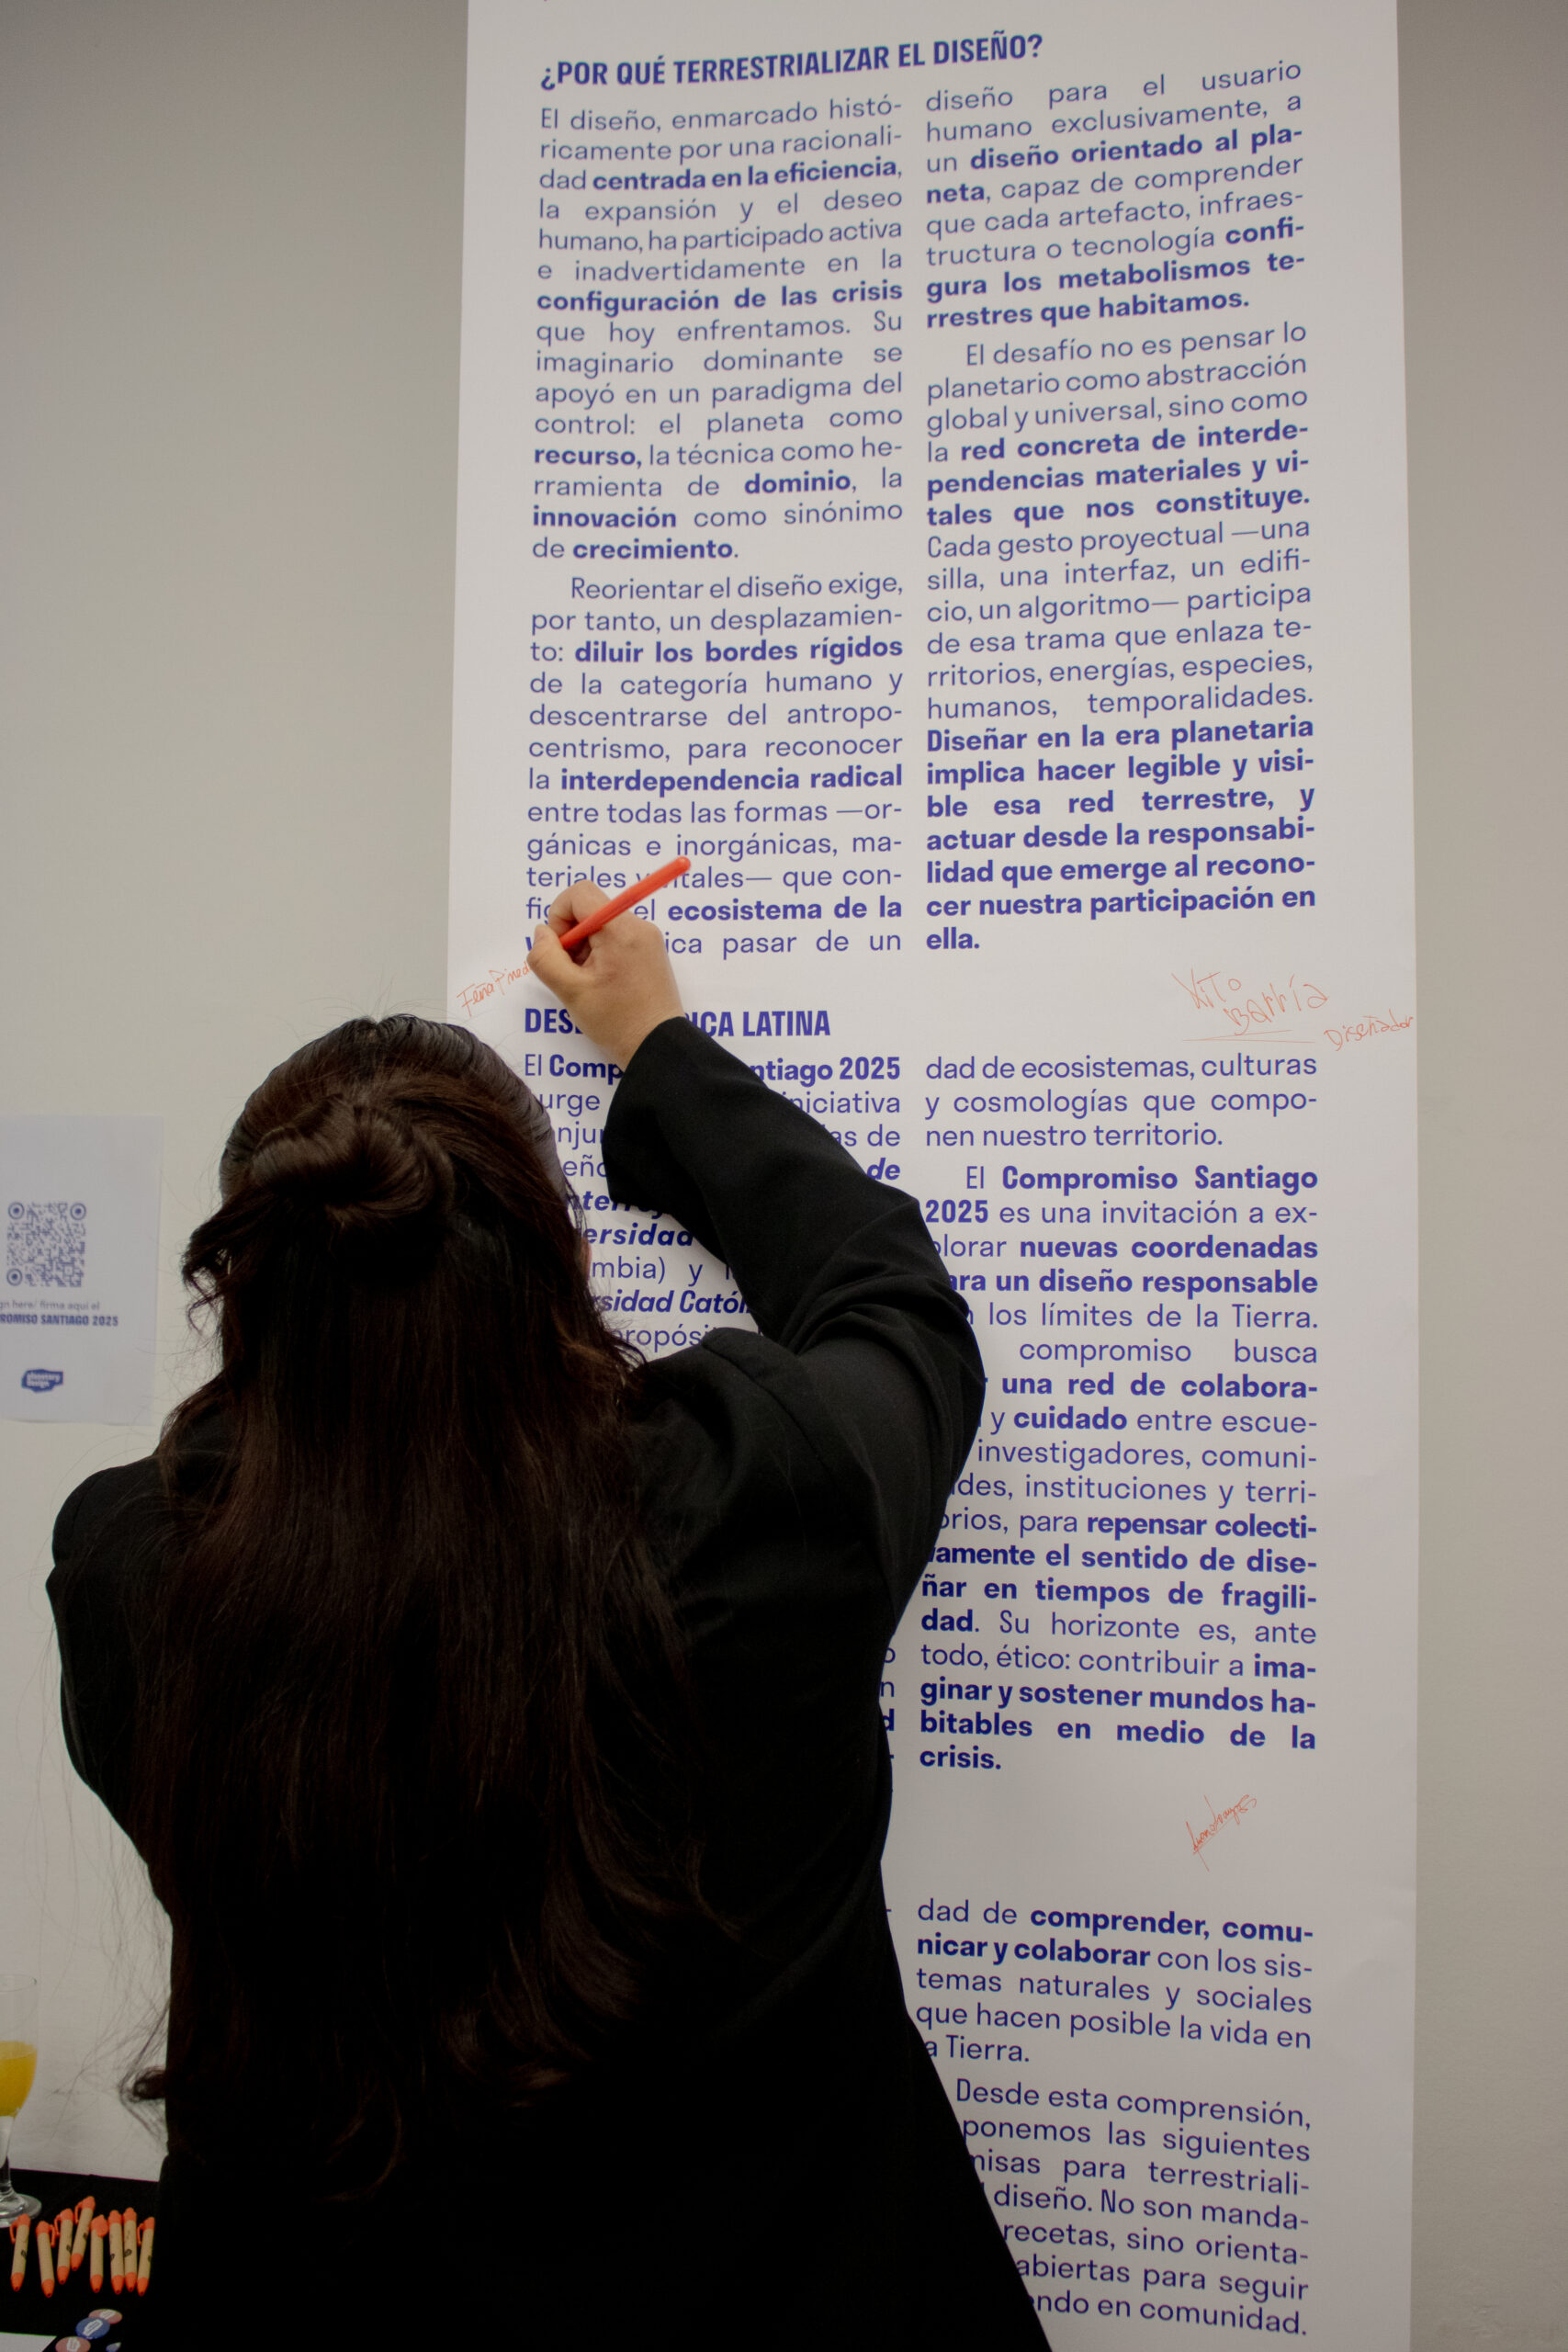 ¿POR QUÉ TERRESTRIALIZAR EL DISEÑO?
El diseño, enmarcado histó-
ricamente por una racionali-
dad centrada en la eficiencia,
la expansión y el deseo
humano, ha participado activa
e inadvertidamente en la
configuración de las crisis
que hoy enfrentamos. Su
imaginario dominante se
apoyó en un paradigma del
control: el planeta como
recurso, la técnica como he-
rramienta de dominio, la
innovación como sinónimo
de crecimiento.
Reorientar el diseño exige,
por tanto, un desplazamien-
to: diluir los bordes rígidos
de la categoría humano y
descentrarse del antropo-
centrismo, para reconocer
la interdependencia radical
entre todas las formas —or-
gánicas e inorgánicas, ma-
teriales y vitales— que con-
el ecosistema de la
pasar de un
diseño para el usuario
humano exclusivamente, a
un diseño orientado al pla-
neta, capaz de comprender
que cada artefacto, infraes-
tructura o tecnología confi-
gura los metabolismos te-
rrestres que habitamos.
El desafío no es pensar lo
planetario como abstracción
global y universal, sino como
la red concreta de interde-
pendencias materiales y vi-
tales que nos constituye.
Cada gesto proyectual —una
silla, una interfaz, un edifi-
cio, un algoritmo— participa
de esa trama que enlaza te-
rritorios, energías, especies,
humanos, temporalidades.
Diseñar en la era planetaria
implica hacer legible y visi-
ble esa red terrestre, y
actuar desde la responsabi-
lidad que emerge al recono-
cer nuestra participación en
ella.
Vito
Barría
Diseñador
LATINA
El 2025
iniciativa
de
de
y
dad de ecosistemas, culturas
y cosmologías que compo-
nen nuestro territorio.
El Compromiso Santiago
2025 es una invitación a ex-
plorar nuevas coordenadas
para un diseño responsable
los límites de la Tierra.
compromiso busca
una red de colabora-
y cuidado entre escue-
investigadores, comuni-
dades, instituciones y terri-
torios, para repensar colecti-
vamente el sentido de dise-
ñar en tiempos de fragili-
dad. Su horizonte es, ante
todo, ético: contribuir a ima-
ginar y sostener mundos ha-
bitables en medio de la
crisis.
dad de comprender, comu-
nicar y colaborar con los sis-
temas naturales y sociales
que hacen posible la vida en
la Tierra.
Desde esta comprensión,
ponemos las siguientes
misas para terrestriali-
diseño. No son manda-
recetas, sino orienta-
abiertas para seguir
endo en comunidad.
here/ firma aquí el
SANTIAGO 2025